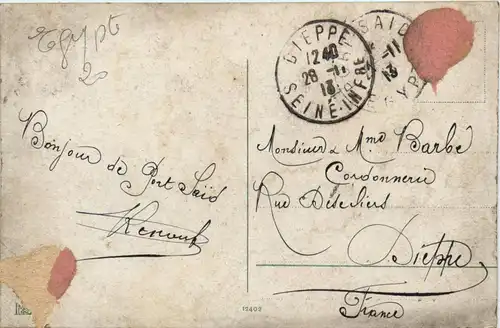 Egypt
20
DIEPPE
12 40
28 - 11
13
SEINE-INFRE
SAID
11
13
EGYP
Bonjour de Port Saïd
Monsieur & Mme Barbé
Cordonnerie
Rue Desceliers
Dieppe
France
12402